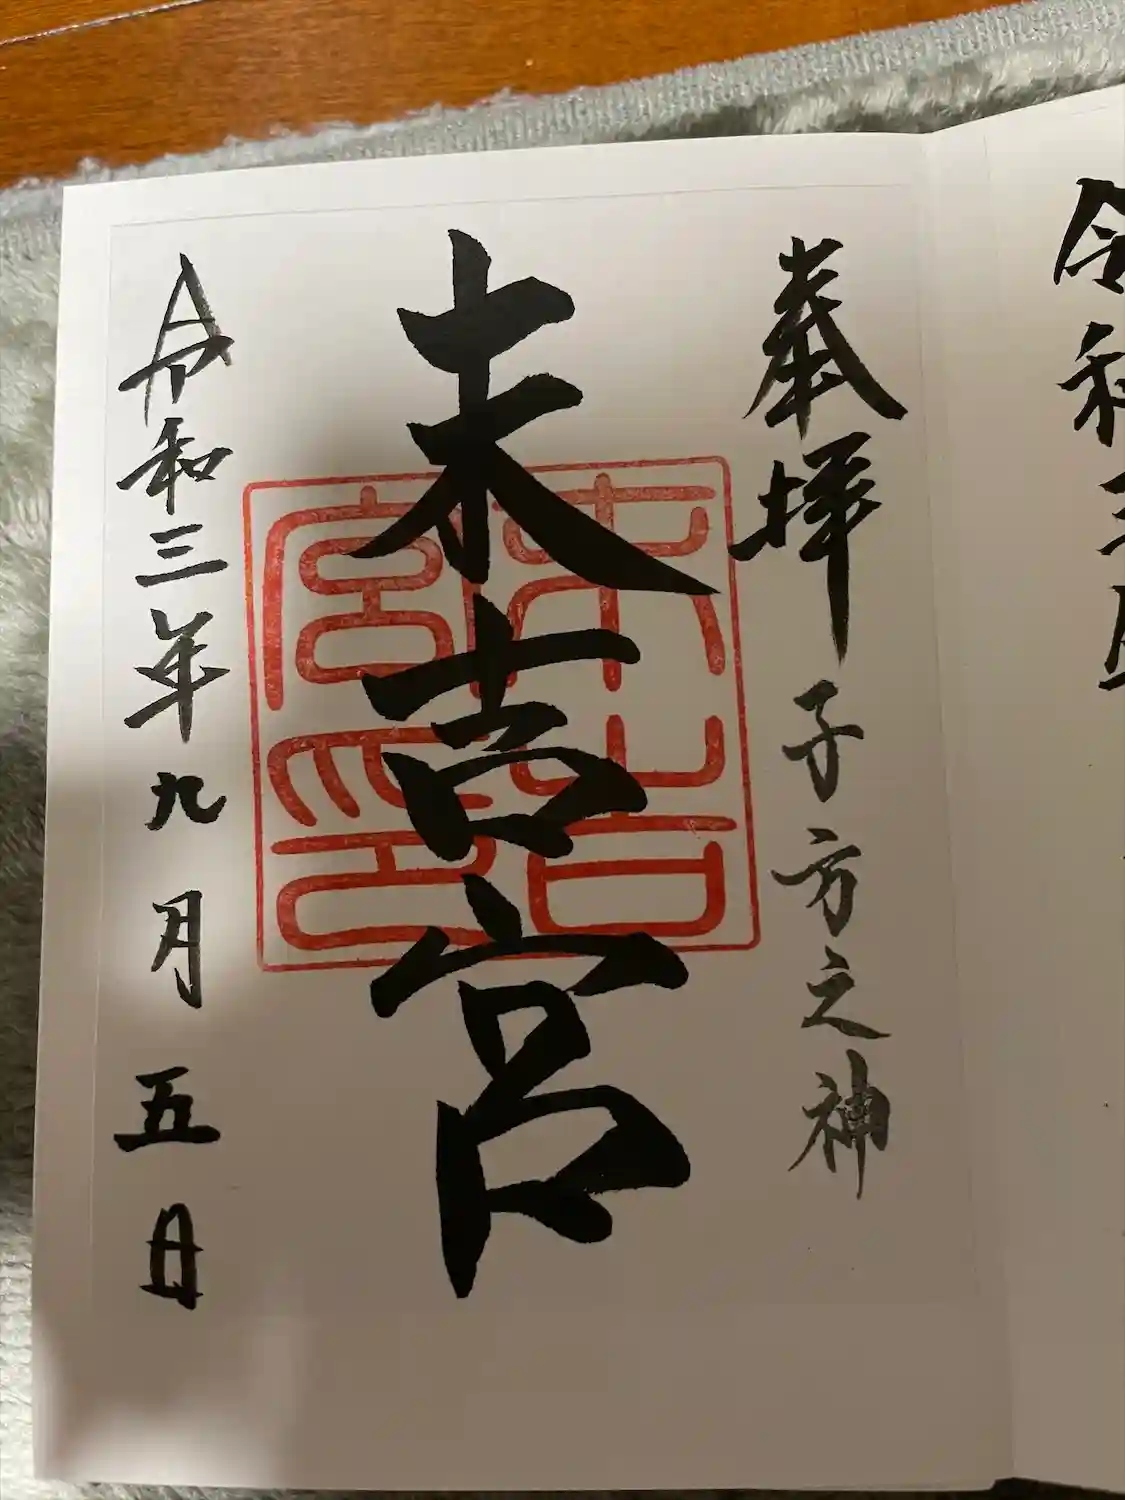 令和
奉拝 子方之神
末吉宮
末吉宮印
令和三年九月五日